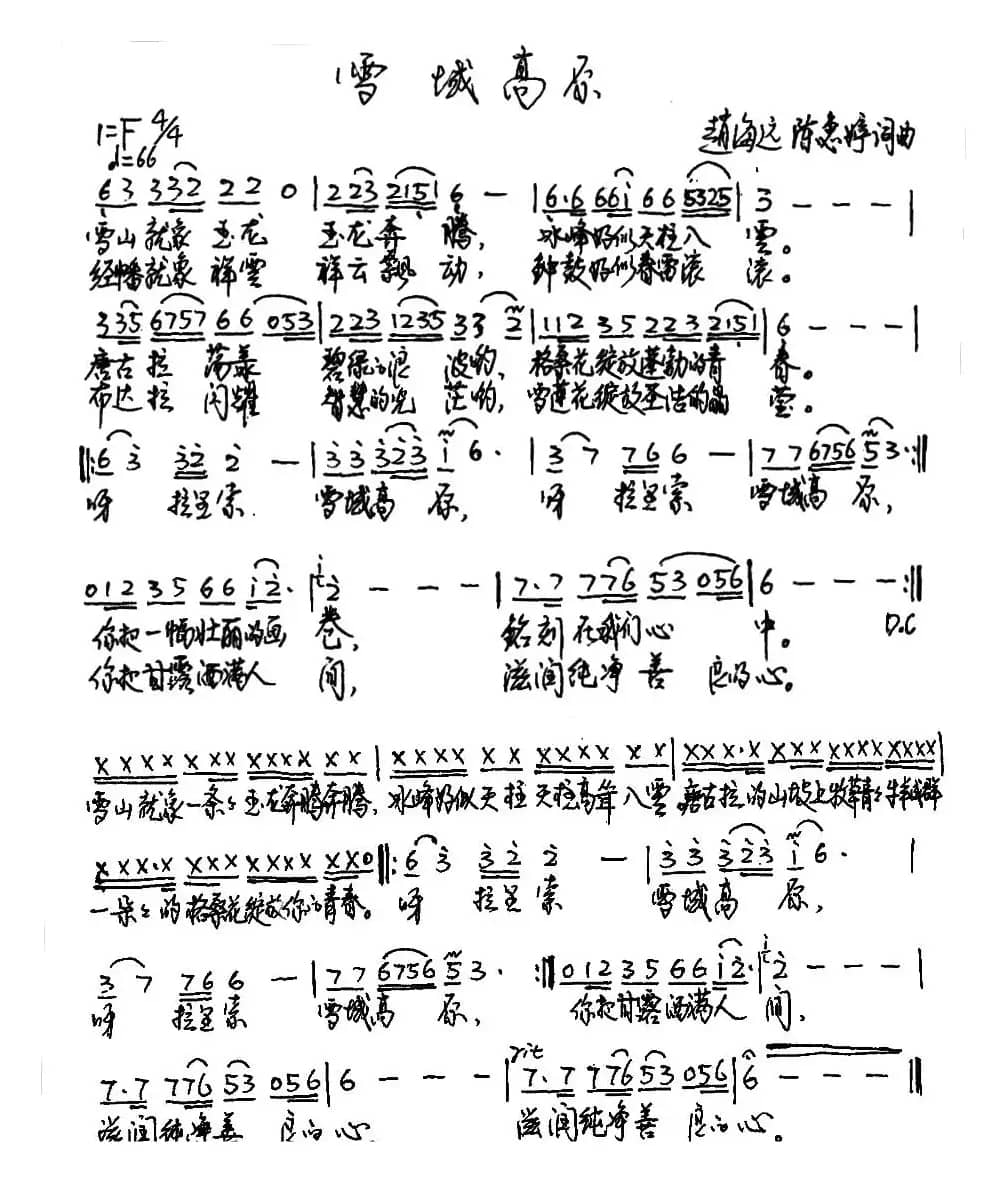 雪域高原
1=F 4/4
♩=66
趙海远 陈惠婷词曲
63 332 22 0 | 223 2151 6 — | 6·6 66i 66 5325 | 3 — — — |
雪山就象玉龙 玉龙奔腾， 冰峰好似天柱入雲。
经幡就象祥雲 祥云飘动， 钟鼓好似春雷滚滚。
335 6757 66 053 | 223 1235 33 2 | 112 35 223 2151 | 6 — — —
唐古拉荡漾 碧绿的浪波哟， 格桑花绽放蓬勃的青春。
布达拉闪耀 智慧的光茫哟， 雪莲花绽放圣洁的晶莹。
‖: 6 3 32 2 — | 3 3 323 i 6· | 3 7 766 — | 77 6756 5 3· :‖
呀 拉呈索 雪域高原， 呀 拉呈索 雪域高原，
012 35 66 i2· | 2 — — — | 7·7 776 53 056 | 6 — — — :‖
你把一幅壮丽的画卷， 銘刻在我们心中。 D.C
你把甘露洒满人间， 滋润纯净善良的心。
XXXX XXX XXXX XX | XXXX XX XXXX XX | XXX·X XXX XXXX XXXX |
雪山就象一条々玉龙奔腾奔腾， 冰峰好似天柱天柱高耸入雲 唐古拉的山坡上牧草青々牛羊成群
XXX·X XXX XXXX XX0 ‖: 6 3 32 2 — | 3 3 323 i 6· |
一朵々的格桑花绽放你的青春。 呀 拉呈索 雪域高原，
3 7 766 — | 77 6756 5 3· :‖ 012 35 66 i2· | 2 — — — |
呀 拉呈索 雪域高原， 你把甘露洒满人间，
rit
7·7 776 53 056 | 6 — — — | 7·7 776 53 056 | 6 — — — ‖
滋润纯净善良的心 滋润纯净善良的心。